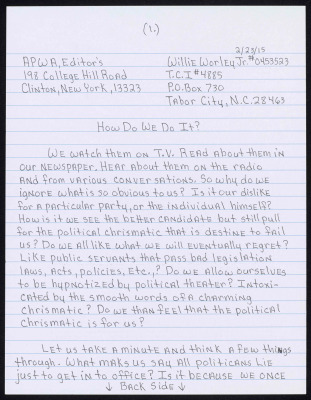 (1.)
2/23/15
APWA, Editor's Willie Worley Jr. #0453523
198 College Hill Road T.C.I #4885
Clinton, New York, 13323 P.O. Box 730
Tabor City, N.C. 28463
How Do We Do It?
We watch them on T.V. Read about them in
our newspaper. Hear about them on the radio
and from various conversations. So why do we
ignore what is so obvious to us? Is it our dislike
for a particular party, or the individual himself?
How is it we see the better candidate but still pull
for the political chrismatic that is destine to fail
us? Do we all like what we will eventually regret?
Like public servants that pass bad legislation
laws, acts, policies, etc.,? Do we allow ourselves
to be hypnotized by political theater? Intoxi-
cated by the smooth words of a charming
chrismatic? Do we than feel that the political
chrismatic is for us?
Let us take a minute and think a few things
through. What makes us say all politicans lie
just to get in to office? Is it because we once
↓ Back Side ↓